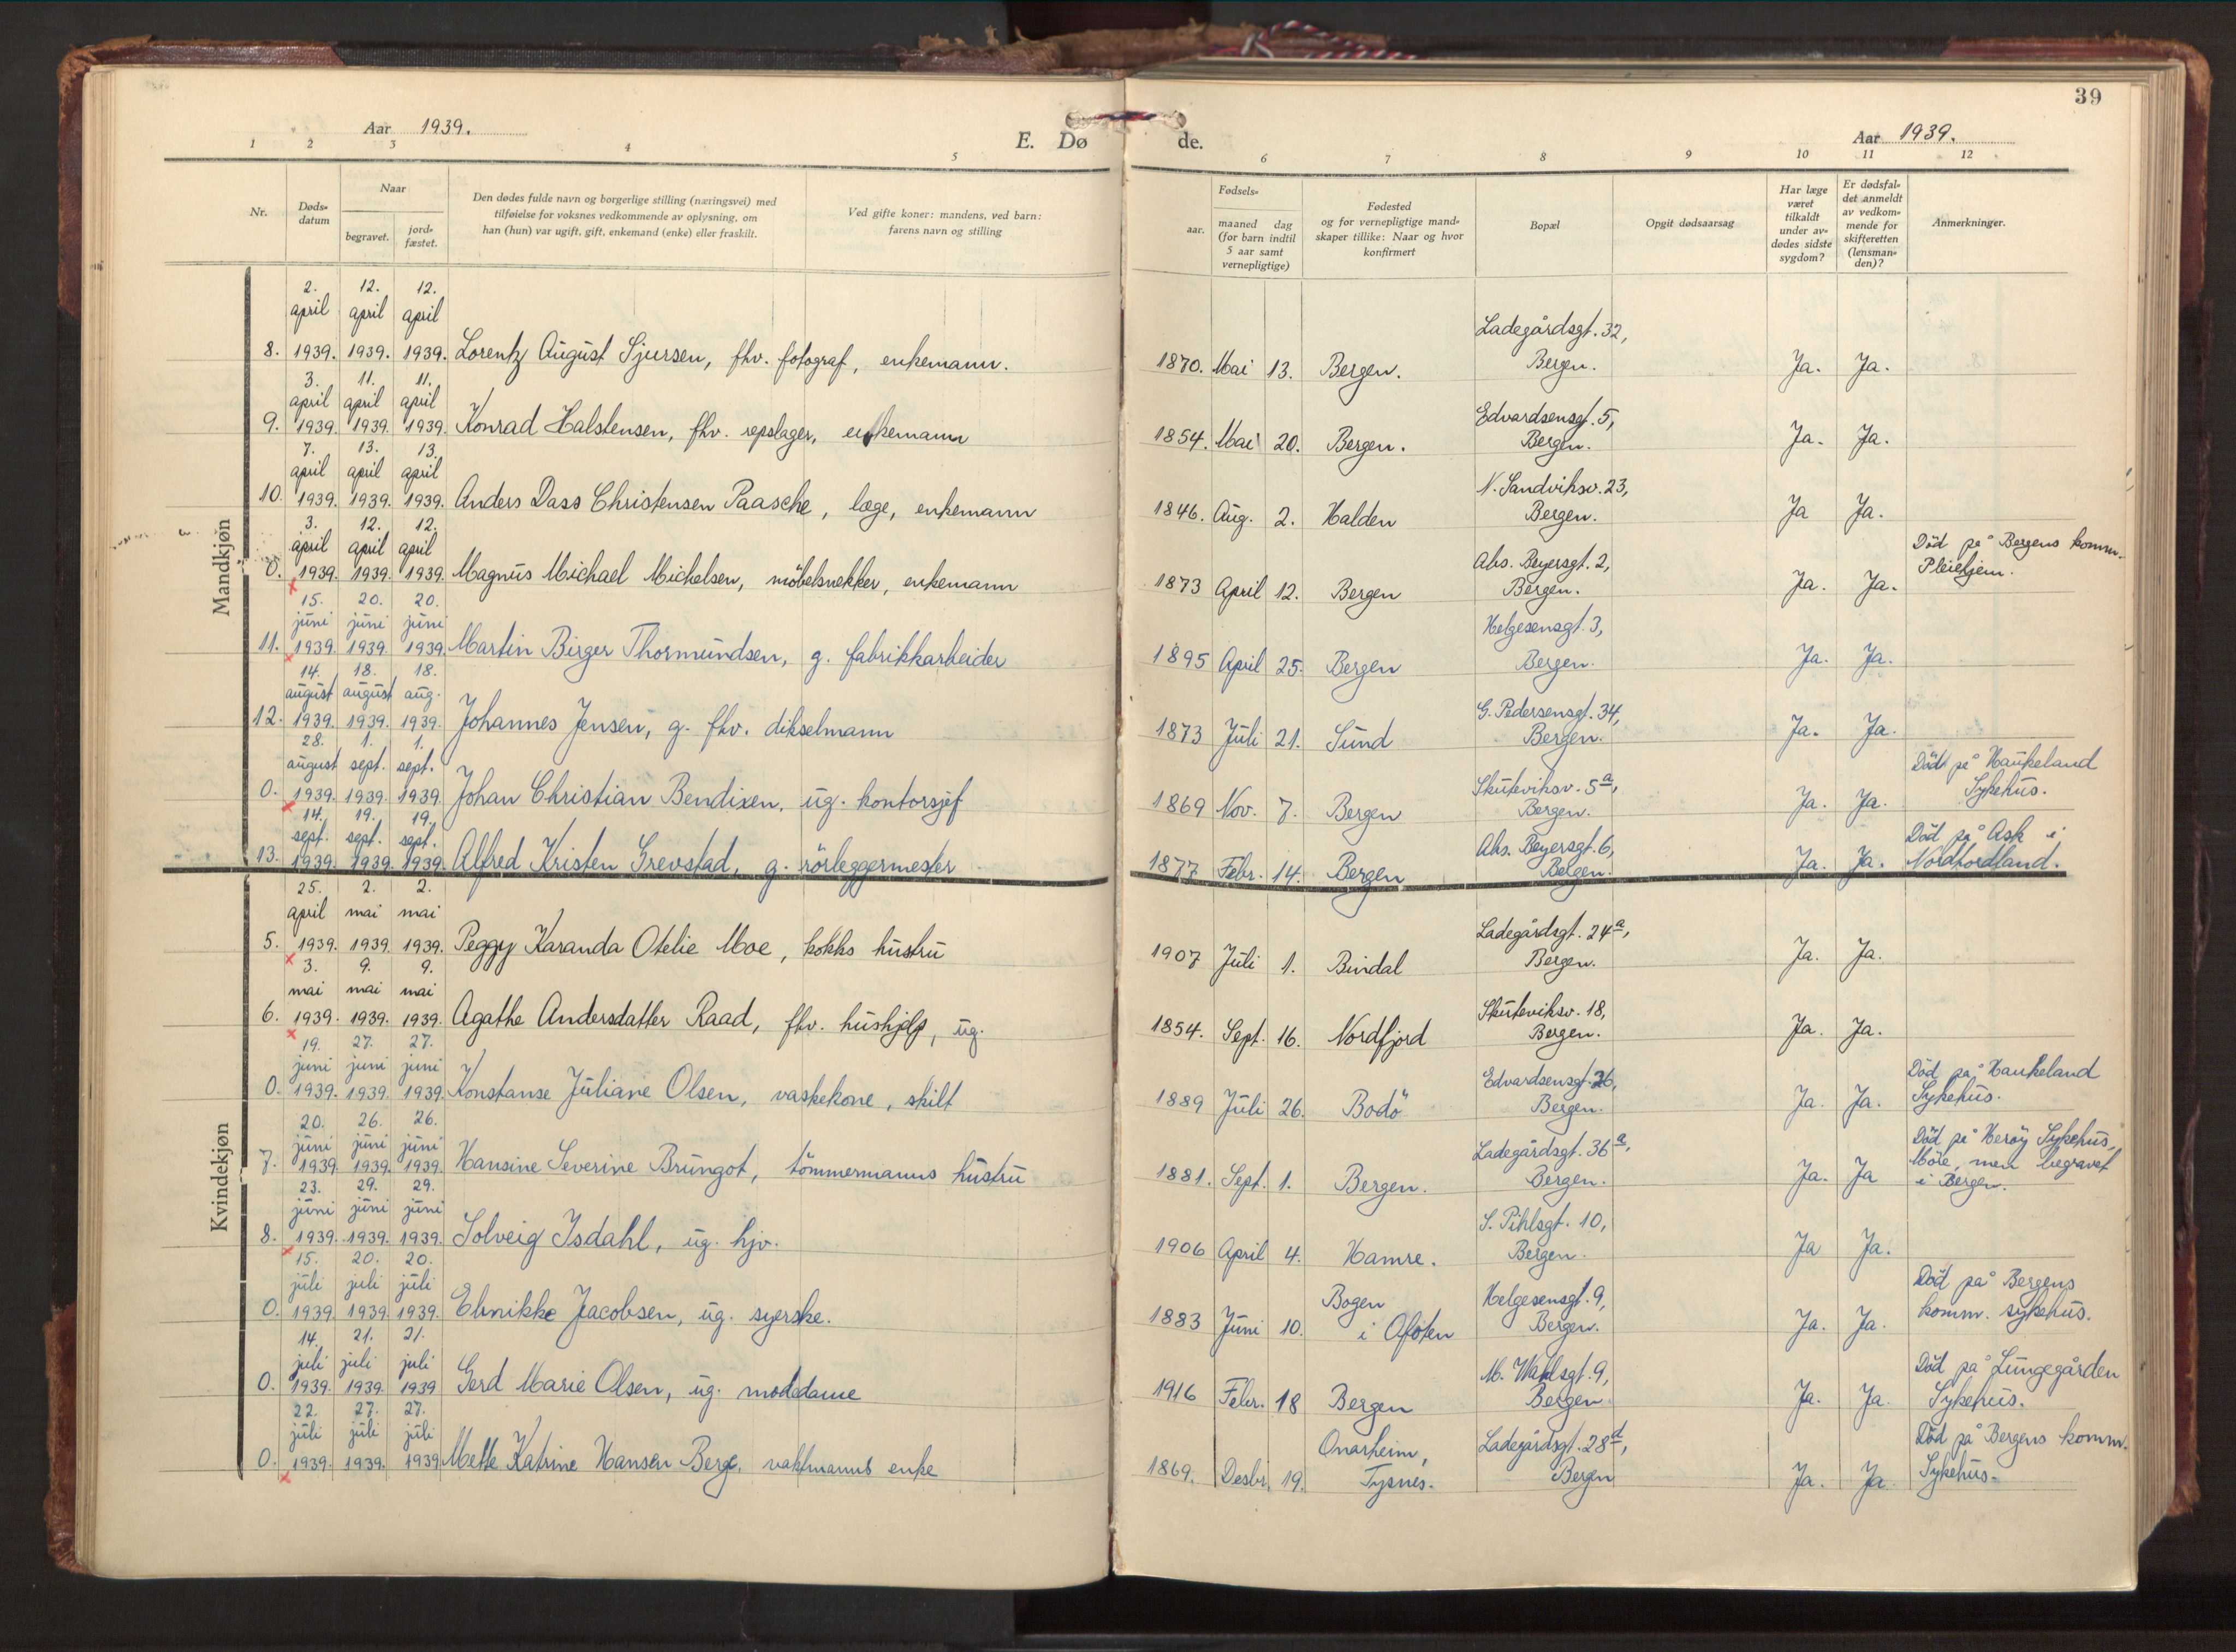 39
Aar 1939.
E. Dø de.
Aar 1939.
1 2 3 4 5 6 7 8 9 10 11 12
Nr.
Døds-
datum
Naar
begravet.
jord-
fæstet.
Den dødes fulde navn og borgerlige stilling (næringsvei) med
tilføielse for voksnes vedkommende av oplysning, om
han (hun) var ugift, gift, enkemand (enke) eller fraskilt.
Ved gifte koner: mandens, ved barn:
farens navn og stilling
Fødsels-
aar.
maaned dag
(for barn indtil
5 aar samt
vernepligtige)
Fødested
og for vernepligtige mand-
skaper tillike: Naar og hvor
konfirmert
Bopæl
Opgit dødsaarsag
Har læge
været
tilkaldt
under av-
dødes sidste
sygdom?
Er dødsfal-
det anmeldt
av vedkom-
mende for
skifteretten
(lensman-
den)?
Anmerkninger.
Mandkjøn
2. 12. 12.
april april april Ladegårdsgt. 32,
8. 1939. 1939. 1939. Lorentz August Sjursen, fhv. fotograf, enkemann. 1870. Mai 13. Bergen. Bergen. Ja. Ja.
3. 11. 11.
april april april Edvardsensgt. 5,
9. 1939. 1939. 1939. Konrad Halstensen, fhv. repslager, enkemann 1854. Mai 20. Bergen. Bergen. Ja. Ja.
7. 13. 13.
april april april N. Sandviksv. 23,
10. 1939. 1939. 1939. Anders Dass Christensen Paasche, læge, enkemann 1846. Aug. 2. Halden Bergen. Ja Ja.
3. 12. 12.
april april april Abs. Beyersgt. 2, Död på Bergens komm.
0. 1939. 1939. 1939. Magnus Michael Michelsen, möbelsnekker, enkemann 1873 April 12. Bergen Bergen. Ja. Ja. Pleiehjem.
15. 20. 20.
juni juni juni Helgesensgt. 3,
11. 1939. 1939. 1939. Martin Birger Thormundsen, g. fabrikkarbeider 1895 April 25. Bergen Bergen. Ja. Ja.
14. 18. 18.
august august aug. G. Pedersensgt. 34,
12. 1939. 1939. 1939. Johannes Jensen, g. fhv. dikselmann 1873 Juli 21. Sund Bergen. Ja. Ja.
28. 1. 1.
august sept. sept. Skuteviksv. 5a, Död på Haukeland
0. 1939. 1939. 1939 Johan Christian Bendixen, ug. kontorsjef 1869 Nov. 7. Bergen Bergen. Ja. Ja. Sykehus.
14. 19. 19.
sept. sept. sept. Abs. Beyersgt. 6, Död på Ask i
13. 1939. 1939. 1939. Alfred Kristen Grevstad, g. rörleggermester 1877 Febr. 14. Bergen Belgen. Ja. Ja. Nordhordland.
Kvindekjøn
25. 2. 2.
april mai mai Ladegårdsgt. 24a,
5. 1939. 1939. 1939. Peggy Karanda Otelie Moe, kokks hustru 1907 Juli 1. Bindal Bergen. Ja. Ja.
3. 9. 9.
mai mai mai Skuteviksv. 18,
6. 1939. 1939. 1939. Agathe Andersdatter Raad, fhv. hushjelp, ug. 1854. Sept. 16. Nordfjord Bergen. Ja. Ja.
19. 27. 27.
juni juni juni Edvardsensgt. 26, Död på Haukeland
0. 1939. 1939. 1939. Konstanse Juliane Olsen, vaskekone, skilt 1889 Juli 26. Bodö Bergen. Ja. Ja. Sykehus.
20. 26. 26.
juni juni juni Ladegårdsgt. 36a, Död på Heröy Sykehus,
7. 1939. 1939. 1939. Hansine Severine Brungot, tömmermanns hustru 1881. Sept. 1. Bergen. Bergen. Ja. Ja Möre, men begravet
i Bergen.
23. 29. 29.
juni juni juni S. Pihlsgt. 10,
8. 1939. 1939. 1939. Solveig Isdahl, ug. hjv. 1906 April 4. Hamre. Bergen. Ja Ja.
15. 20. 20.
juli juli juli Bogen Helgesensgt. 9, Död på Bergens
0. 1939. 1939. 1939. Elnikke Jacobsen, ug. syerske. 1883 Juni 10. i Ofoten Bergen. Ja. Ja. komm. sykehus.
14. 21. 21.
juli juli juli M. Wahlsgt. 9, Död på Lungegården
0. 1939. 1939. 1939 Gerd Marie Olsen, ug. motedame 1916 Febr. 18 Bergen Bergen. Ja. Ja. Sykehus.
22. 27. 27.
juli juli juli Onarheim, Ladegårdsgt. 28d, Död på Bergens komm.
0. 1939. 1939. 1939 Mette Katrine Hansen Berge, vaktmanns enke 1869. Desbr. 19. Tysnes. Bergen Ja. Ja. Sykehus.